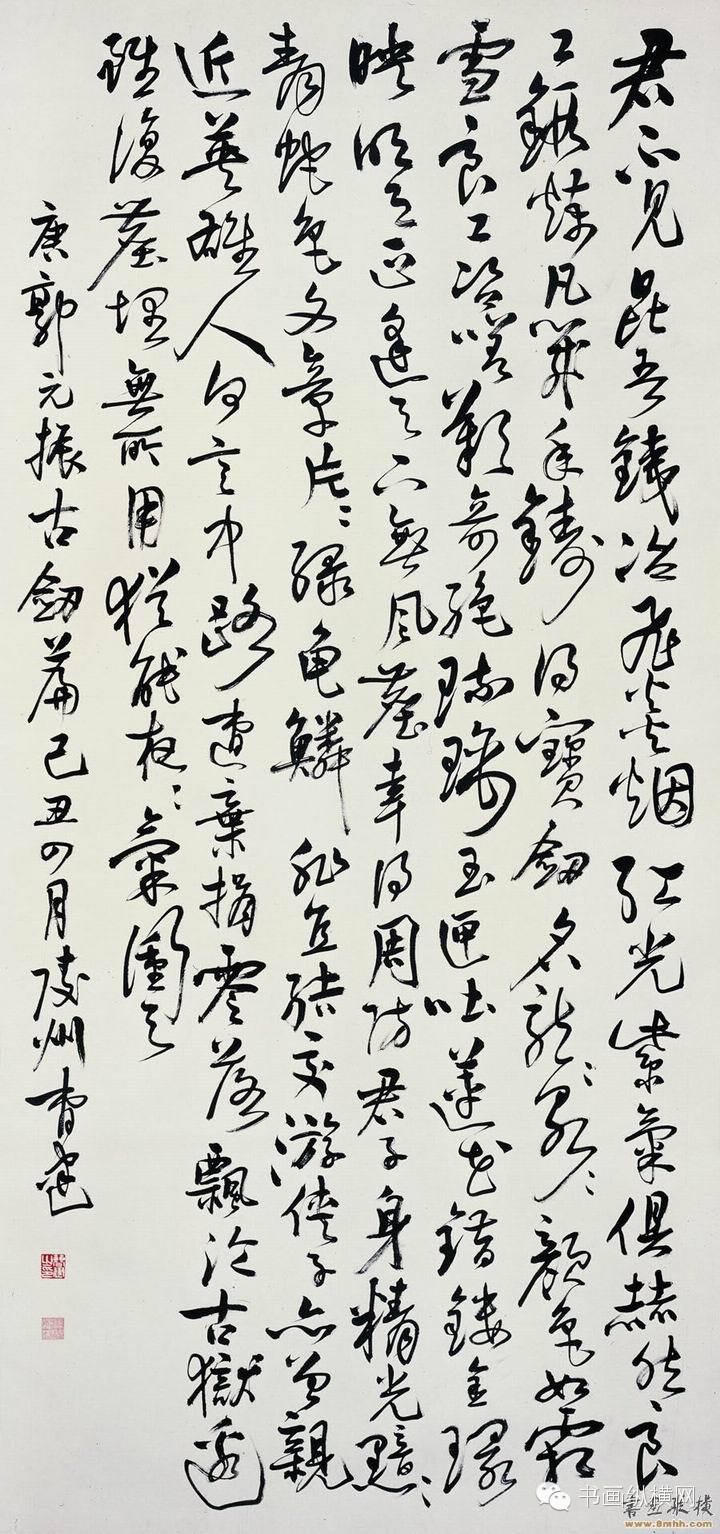 君不見昆吾鐵冶飛炎烟紅光紫氣俱赫然良
工鍛煉凡幾年鑄得寶劍名龍〻泉〻顏色如霜
雪良工咨嗟歎奇絕琉璃玉匣吐蓮花錯鏤金環
映明月正逢天下無風塵幸得周防君子身精光黯〻
青蛇色文章片〻綠龜鱗非直結交游俠子亦曾親
近英雄人何言中路遭棄捐零落飄淪古獄邊
雖復塵埋無所用猶能夜〻氣衝天
唐郭元振古劍篇己丑四月陵州曹建
书画纵横网
書畫縱橫
www.8mhh.com